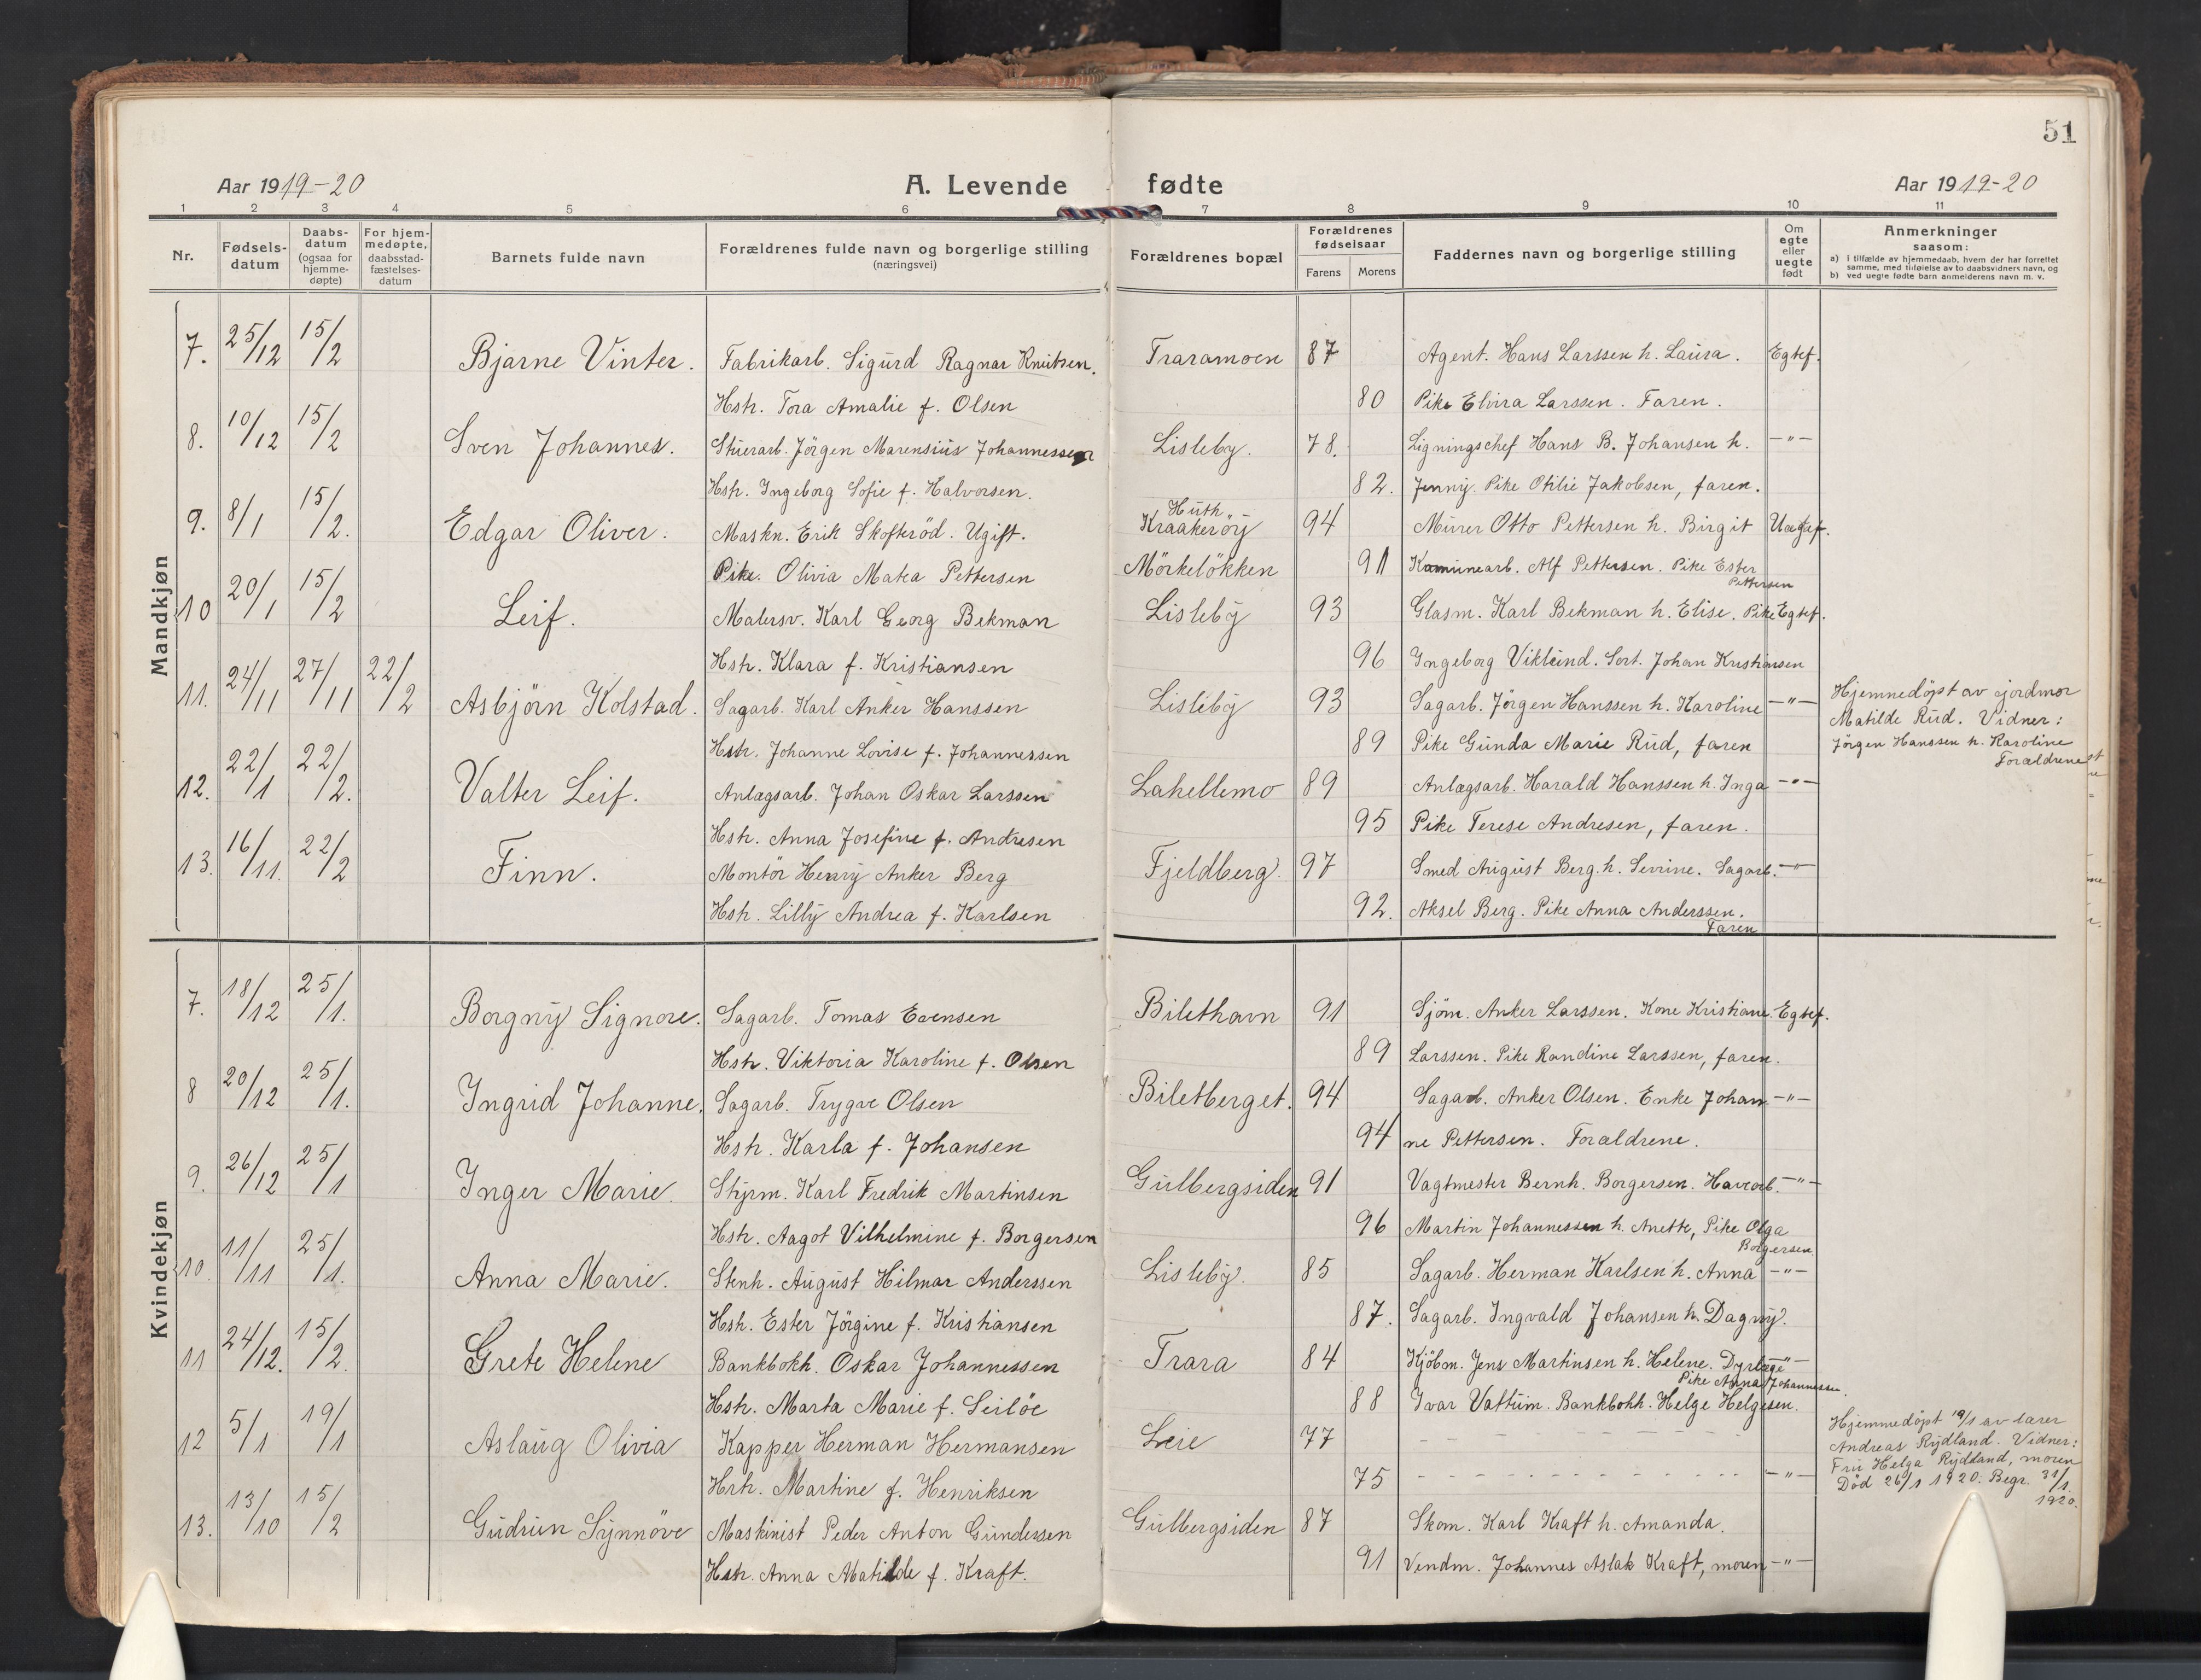 51
Aar 1919-20 A. Levende fødte Aar 1919-20
1 2 3 4 5 6 7 8 9 10 11
Nr. Fødselsdatum Daabsdatum (ogsaa for hjemmedøpte) For hjemmedøpte, daabsstadfæstelsesdatum Barnets fulde navn Forældrenes fulde navn og borgerlige stilling (næringsvei) Forældrenes bopæl Forældrenes fødselsaar Farens Morens Faddernes navn og borgerlige stilling Om egte eller uegte født Anmerkninger saasom: a) i tilfælde av hjemmedaab, hvem der har forrettet samme, med tilføielse av to daabsvidners navn, og b) ved uegte fødte barn anmelderens navn m. v.
Mandkjøn
7. 25/12 15/2 Bjarne Vinter. Fabrikarb. Sigurd Ragnar Knutsen. Traramoen 87 Agent. Hans Larssen h. Laura. Egtef.
Hstr. Tora Amalie f. Olsen 80 Pike Elvira Larssen. Faren.
8. 10/12 15/2 Sven Johannes. Stuerarb. Jörgen Marensius Johannessen Lisleby. 78. Ligningschef Hans B. Johansen h. -"-
Hstr. Ingeborg Sofie f. Halvorsen. 82. Jenny. Pike Otilie Jakobsen, faren.
9. 8/1 15/2. Edgar Oliver. Maskn. Erik Skofteröd. Ugift. Huth Kraakeröy 94 Murer Otto Pettersen h. Birgit Uegtef.
Pike. Olivia Matea Pettersen Mörkelökken 91 Kommunearb. Alf Pettersen. Pike Ester Pettersen
10 20/1 15/2 Leif. Malersv. Karl Georg Bekman Lisleby 93 Glasm. Karl Bekman h. Elise. Pike Egtef.
Hstr. Klara f. Kristiansen 96 Ingeborg Viklund. Sort. Johan Kristiansen
11. 24/11 27/11 22/2 Asbjörn Kolstad. Sagarb. Karl Anker Hanssen Lisleby 93 Sagarb. Jörgen Hanssen h. Karoline -"- Hjemmedöpt av jordmor
Matilde Rud. Vidner:
Hstr. Johanne Lovise f. Johannessen 89 Pike Gunda Marie Rud, faren Jörgen Hanssen h. Karoline
Forældrene
12. 22/1 22/2. Valter Leif. Anlægsarb. Johan Oskar Larssen Lahellemo 89 Anlægsarb. Harald Hanssen h. Inga -"-
Hstr. Anna Josefine f. Andresen 95 Pike Terese Andresen, faren.
13. 16/11. 22/2 Finn. Montör Henry Anker Berg Fjeldberg. 97 Smed August Berg. h. Sevrine. Sagarb. -"-
Hstr. Lilly Andrea f. Karlsen 92. Aksel Berg. Pike Anna Anderssen.
Faren
Kvindekjøn
7. 18/12 25/1. Borgny Signore. Sagarb. Tomas Evensen Bilethavn 91 Sjöm. Anker Larssen. Kone Kristiane Egtef.
Hstr. Viktoria Karoline f. Olsen 89 Larssen. Pike Randine Larssen, faren.
8 20/12 25/1. Ingrid Johanne. Sagarb. Trygve Olsen Biletberget. 94 Sagarb. Anker Olsen. Enke Johan- -"-
Hstr. Karla f. Johansen 94 ne Pettersen. Forældrene.
9. 26/12 25/1 Inger Marie. Styrm. Karl Fredrik Martinsen Gulbergsiden 91 Vagtmester Bernh. Borgersen. Havearb. -"-
Hstr. Aagot Vilhelmine f. Borgersen 96 Martin Johannessen h. Anette, Pike Olga
Borgersen
10. 11/11 25/1. Anna Marie. Stenh. August Hilmar Anderssen Lisleby. 85 Sagarb. Herman Karlsen h. Anna -"-
Hstr. Ester Jörgine f. Kristiansen 87. Sagarb. Ingvald Johansen h. Dagny.
11 24/12. 15/2. Grete Helene Bankbokh. Oskar Johannessen Trara 84 Kjöbm. Jens Martinsen h. Helene. Dyrlæge -"-
Pike Anna Johannessen.
Hstr. Marta Marie f. Seilöe 88 Ivar Vattum. Bankbokh. Helge Helgesen.
12 5/1 19/1 Aslaug Olivia Kapper Herman Hermansen Leie 77 - - - Hjemmedöpt 19/1 av lærer
Andreas Rydland. Vidner:
Hstr. Martine f. Henriksen 75 - - - -"- Fru Helga Rydland, moren
Död 26/1 1920. Begr. 31/1.
1920.
13. 13/10 15/2 Gudrun Synnöve Maskinist Peder Anton Gundersen Gulbergsiden 87 Skom. Karl Kraft h. Amanda.
Hstr. Anna Matilde f. Kraft. 91 Vendm. Johannes Aslak Kraft, moren -"-